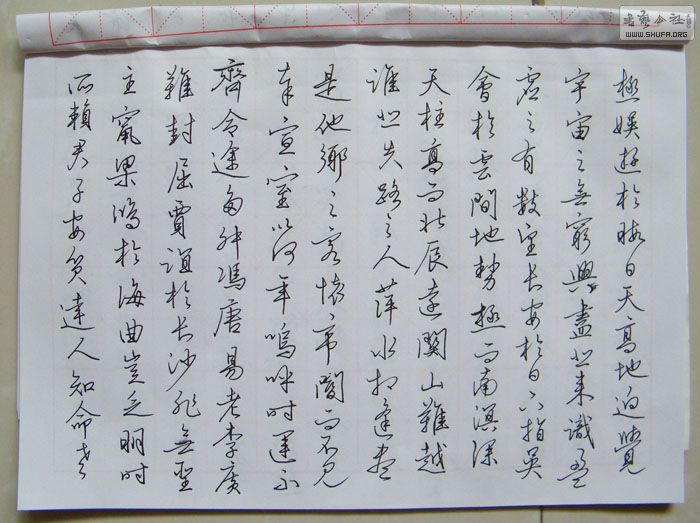 極娛遊於暇日天高地迥覺
宇宙之無窮興盡悲來識盈
虛之有數望長安於日下指吳
會於雲間地勢極而南溟深
天柱高而北辰遠關山難越
誰悲失路之人萍水相逢盡
是他鄉之客懷帝閽而不見
奉宣室以何年嗚呼時運不
齊命途多舛馮唐易老李廣
難封屈賈誼於長沙非無聖
主竄梁鴻於海曲豈乏明時
所賴君子安貧達人知命老
書藝公社
WWW.SHUFA.ORG